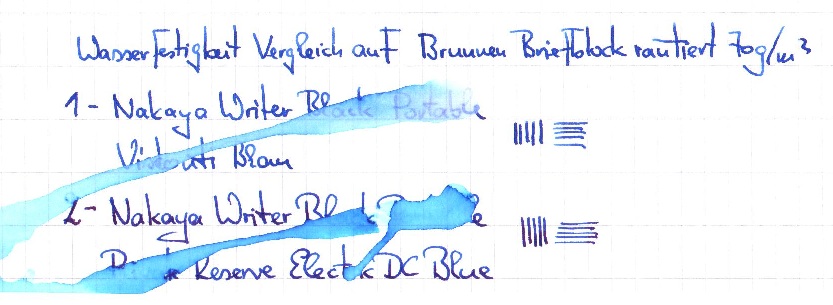 Wasserfestigkeit Vergleich auf Brunnen Briefblock rautiert 70g/m²
1- Nakaya Writer Black Portable
Visconti Blau
2- Nakaya Writer
Reserve Electric DC Blue